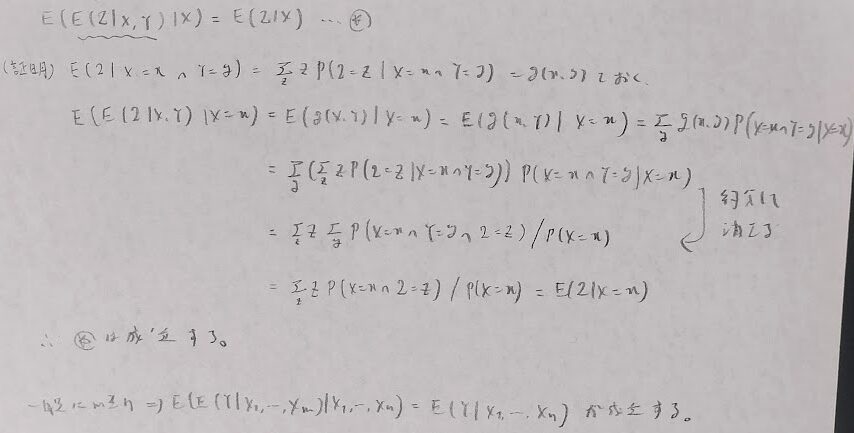 E(E(Z|X,Y)|X) = E(Z|X) … ⊛
(証明) E(Z|X=x∩Y=y) = Σ_z z P(Z=z|X=x∩Y=y) = g(x,y) とおく。
E(E(Z|X,Y)|X=x) = E(g(X,Y)|X=x) = E(g(x,Y)|X=x) = Σ_y g(x,y) P(X=x∩Y=y|X=x)
= Σ_y (Σ_z z P(Z=z|X=x∩Y=y)) P(X=x∩Y=y|X=x)
= Σ_z z Σ_y P(X=x∩Y=y∩Z=z)/P(X=x)
= Σ_z z P(X=x∩Z=z)/P(X=x) = E(Z|X=x)
∴ ⊛は成立する。
一般に m≧n ⇒ E(E(Y|X₁,…,Xm)|X₁,…,Xn) = E(Y|X₁,…,Xn) が成立する。